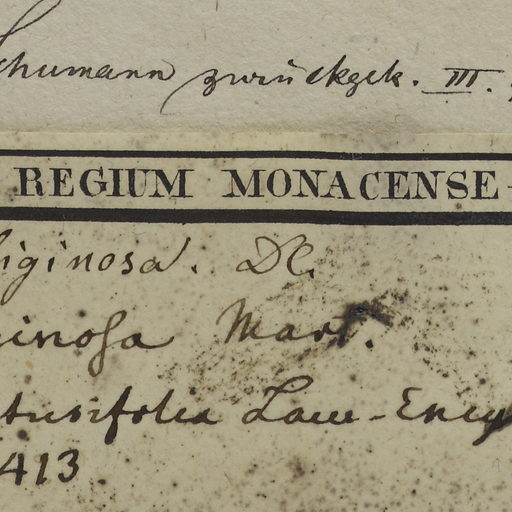 chumann zurückgek. III.
REGIUM MONACENSE
liginosa. DC.
inosa Mart.
tusifolia Lam-Ency
413.